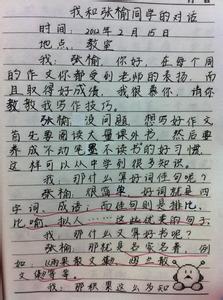 我和张榆同学的对话
时间：2012年2月15日
地点：教室
我：张榆，你好，在每个周
的作文你都受到老师的表扬，而
且取得好成绩，我很羡慕，请你
教教我写作技巧。
张榆：没问题，想写好作文
首先要阅读大量课外书，然后要
养成不动笔墨不读书的好习惯，
这样可以从中学到很多知识。
我：那什么算好词佳句呢？
张榆：很简单，好词就是四
字词，成语；而佳句则是排比、
比喻、拟人……这些优美的句子。
我：那什么又算好书呢？
张榆：那就是名家名著，例
如：散文集，散
文集等等。
我：那积累这么多知